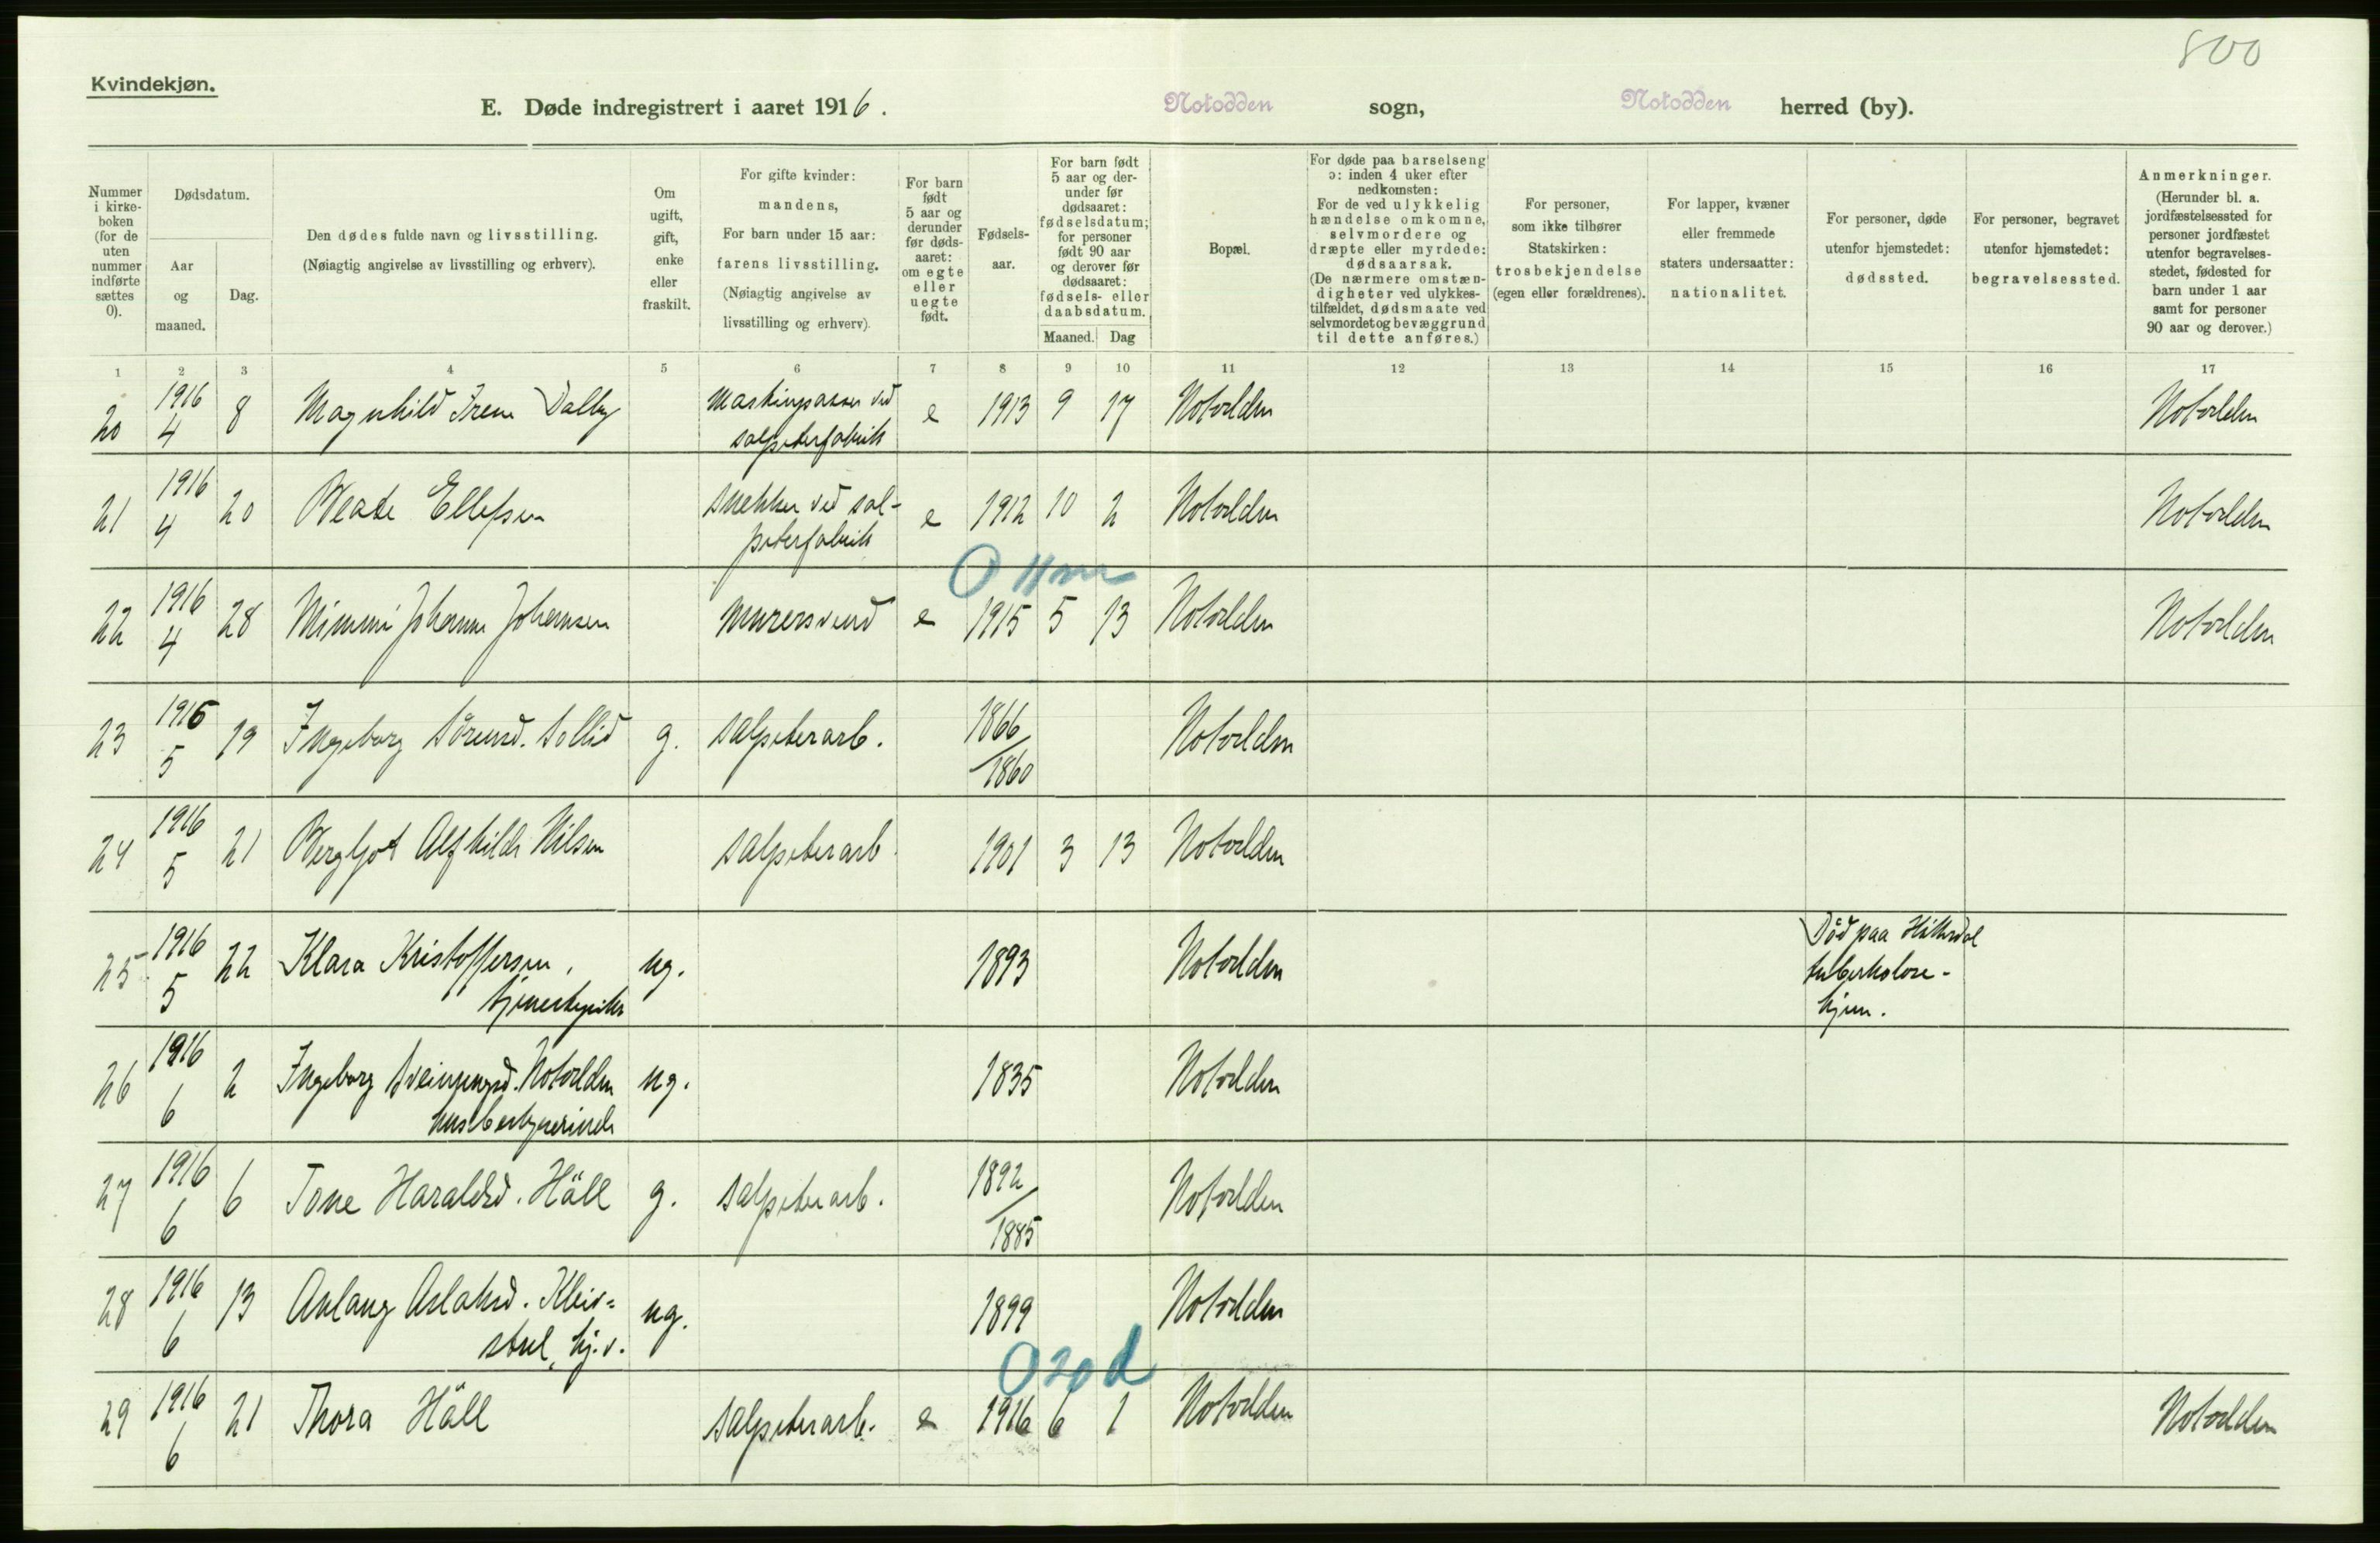 800
Kvindekjøn.
E. Døde indregistrert i aaret 1916. Notodden sogn, Notodden herred (by).
Nummer i kirke- boken (for de uten nummer indførte sættes 0).
Dødsdatum.
Aar og maaned.
Dag.
Den dødes fulde navn og livsstilling.
(Nøiagtig angivelse av livsstilling og erhverv).
Om ugift, gift, enke eller fraskilt.
For gifte kvinder: mandens,
For barn under 15 aar: farens livsstilling.
(Nøiagtig angivelse av livsstilling og erhverv).
For barn født 5 aar og derunder før døds- aaret: om egte eller uegte født.
Fødsels- aar.
For barn født 5 aar og der- under før dødsaaret: fødselsdatum; for personer født 90 aar og derover før dødsaaret: fødsels- eller daabsdatum.
Maaned. Dag
Bopæl.
For døde paa barselseng ɔ: inden 4 uker efter nedkomsten:
For de ved ulykkelig hændelse omkomne, selvmordere og dræpte eller myrdede: dødsaarsak.
(De nærmere omstæn- digheter ved ulykkes- tilfældet, dødsmaate ved selvmordet og bevæggrund til dette anføres.)
For personer, som ikke tilhører Statskirken: trosbekjendelse (egen eller forældrenes).
For lapper, kvæner eller fremmede staters undersaatter: nationalitet.
For personer, døde utenfor hjemstedet: dødssted.
For personer, begravet utenfor hjemstedet: begravelsessted.
Anmerkninger.
(Herunder bl. a. jordfæstelsessted for personer jordfæstet utenfor begravelses- stedet, fødested for barn under 1 aar samt for personer 90 aar og derover.)
1 2 3 4 5 6 7 8 9 10 11 12 13 14 15 16 17
20 1916 4 8 Magnhild Irene Dalby Maskinpasser ved salpeterfabrik e 1913 9 17 Notodden Notodden
21 1916 4 20 Beate Ellefsen snekker ved sal- peterfabrik e 1912 10 2 Notodden Notodden
0 11 m
22 1916 4 28 Mimmi Johanne Johansen murersvend e 1915 5 13 Notodden Notodden
23 1916 5 19 Ingeborg Sörensd. Sollid g. salpeterarb. 1866/1860 Notodden
24 1916 5 21 Bergljot Alfhilde Nilsen salpeterarb. 1901 3 13 Notodden
25 1916 5 22 Klara Kristoffersen, tjenestepike ug. 1893 Notodden Död paa Hitterdal tuberkulose- hjem.
26 1916 6 2 Ingeborg Sveinungsd. Notodden husbestyrerinde ug. 1835 Notodden
27 1916 6 6 Tone Haraldsd. Häll g. salpeterarb. 1892/1885 Notodden
28 1916 6 13 Aslaug Aslaksd. Kleiv= stul, hj.v. ug. 1899 Notodden
0 20 d
29 1916 6 21 Thora Häll salpeterarb. e 1916 6 1 Notodden Notodden